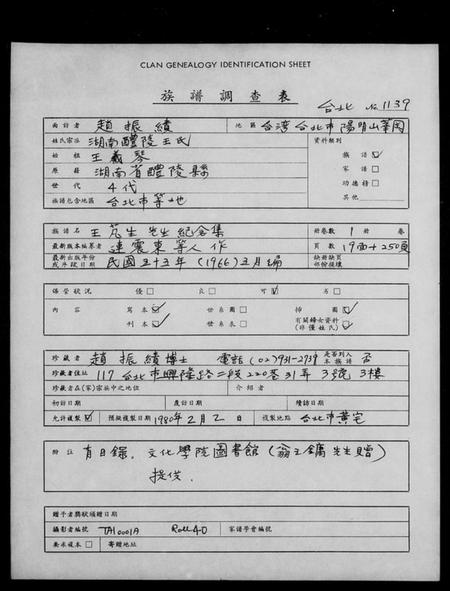 CLAN GENEALOGY IDENTIFICATION SHEET
族譜調查表
台北 No 1139
面訪者 趙振績 地區 台湾台北市陽明山華岡
姓氏宗派 湖南醴陵王氏 資料類別
始祖 王義琴 族譜 ☑
原籍 湖南省醴陵縣 家譜 □
世代 4代 功德榜 □
族譜包含地區 台北市等地 其他
族譜名 王芃生先生紀念集 冊卷數 1 冊卷
最新版本編著者 連震東等人作 頁數 19面+250頁
最新出版年份或年段日期 民國五十五年(1966)五月編 缺冊缺頁部份損壞
保管狀況 優□ 良□ 可☑ 劣□
內容 寫本☑ 世系圖□ 掃圖☑
刊本☑ 世系表□ 有關婦女資料(非僅姓氏)□
珍藏者 趙振績博士 電話(02)931-2739 是否列入本族譜 否
珍藏者住址 117台北市興隆路二段220巷31弄3號3樓
珍藏者在(家)宗族中之地位 介紹者
初訪日期 處訪日期 續訪日期
允許複製☑ 預擬複製日期 1980年2月2日 複製地點 台北市黃宅
附註 有目錄. 文化學院圖書館(翁王鏞先生贈)
提供.
贈予者獎狀頒贈日期
攝影者編號 TA10001A Roll 40 家譜學會編號
要求複本□ 寄贈地址